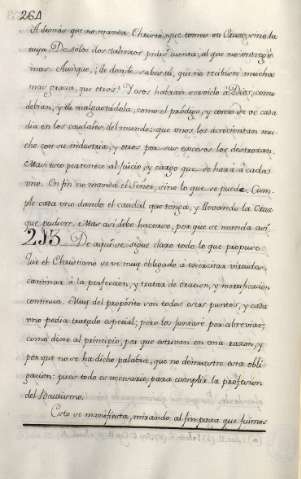 264
Ademàs que no manda Christo, que tomen su Cruz, sino la
suya. De solos dos talentos pedirà cuenta, al que no entregò
mas. Aunque, de donde sabes tù, que no recibiste muchas
mas gracias, que otros? Y otros habràn servido à Dios, como
debian, y tù malgastadola, como el prodigo, y como se vè cada
dia en los caudales del mundo; que unos los acrecientan mu
cho con su industria, y otros por sus excesos los destrozan.
Mas esto pertenece al juicio, y cargo que se harà à cada
uno. En fin no manda el Señor, sino lo que se puede. Cum
ple cada uno dando el caudal que tenga, y llevando la Cruz
que pudiere. Mas asi debe hacerse, por que se manda asi.
215 De aqui se sigue claro todo lo que propuse.
Que el Christiano se vè muy obligado à exercitar virtudes,
caminar à la perfeccion, y tratar de oracion, y mortificacion
continua. Muy del proposito son todos estos puntos, y cada
uno pedia tratado especial; pero los junté por abreviar;
como dixe al principio, por que estrivan en una razon, y
por que no se ha dicho palabra, que no demuestre esta obli
gacion: pues todo es necesario, para cumplir la profesion
del Bautismo.
Esto se manifiesta, mirando al fin para que fuimos